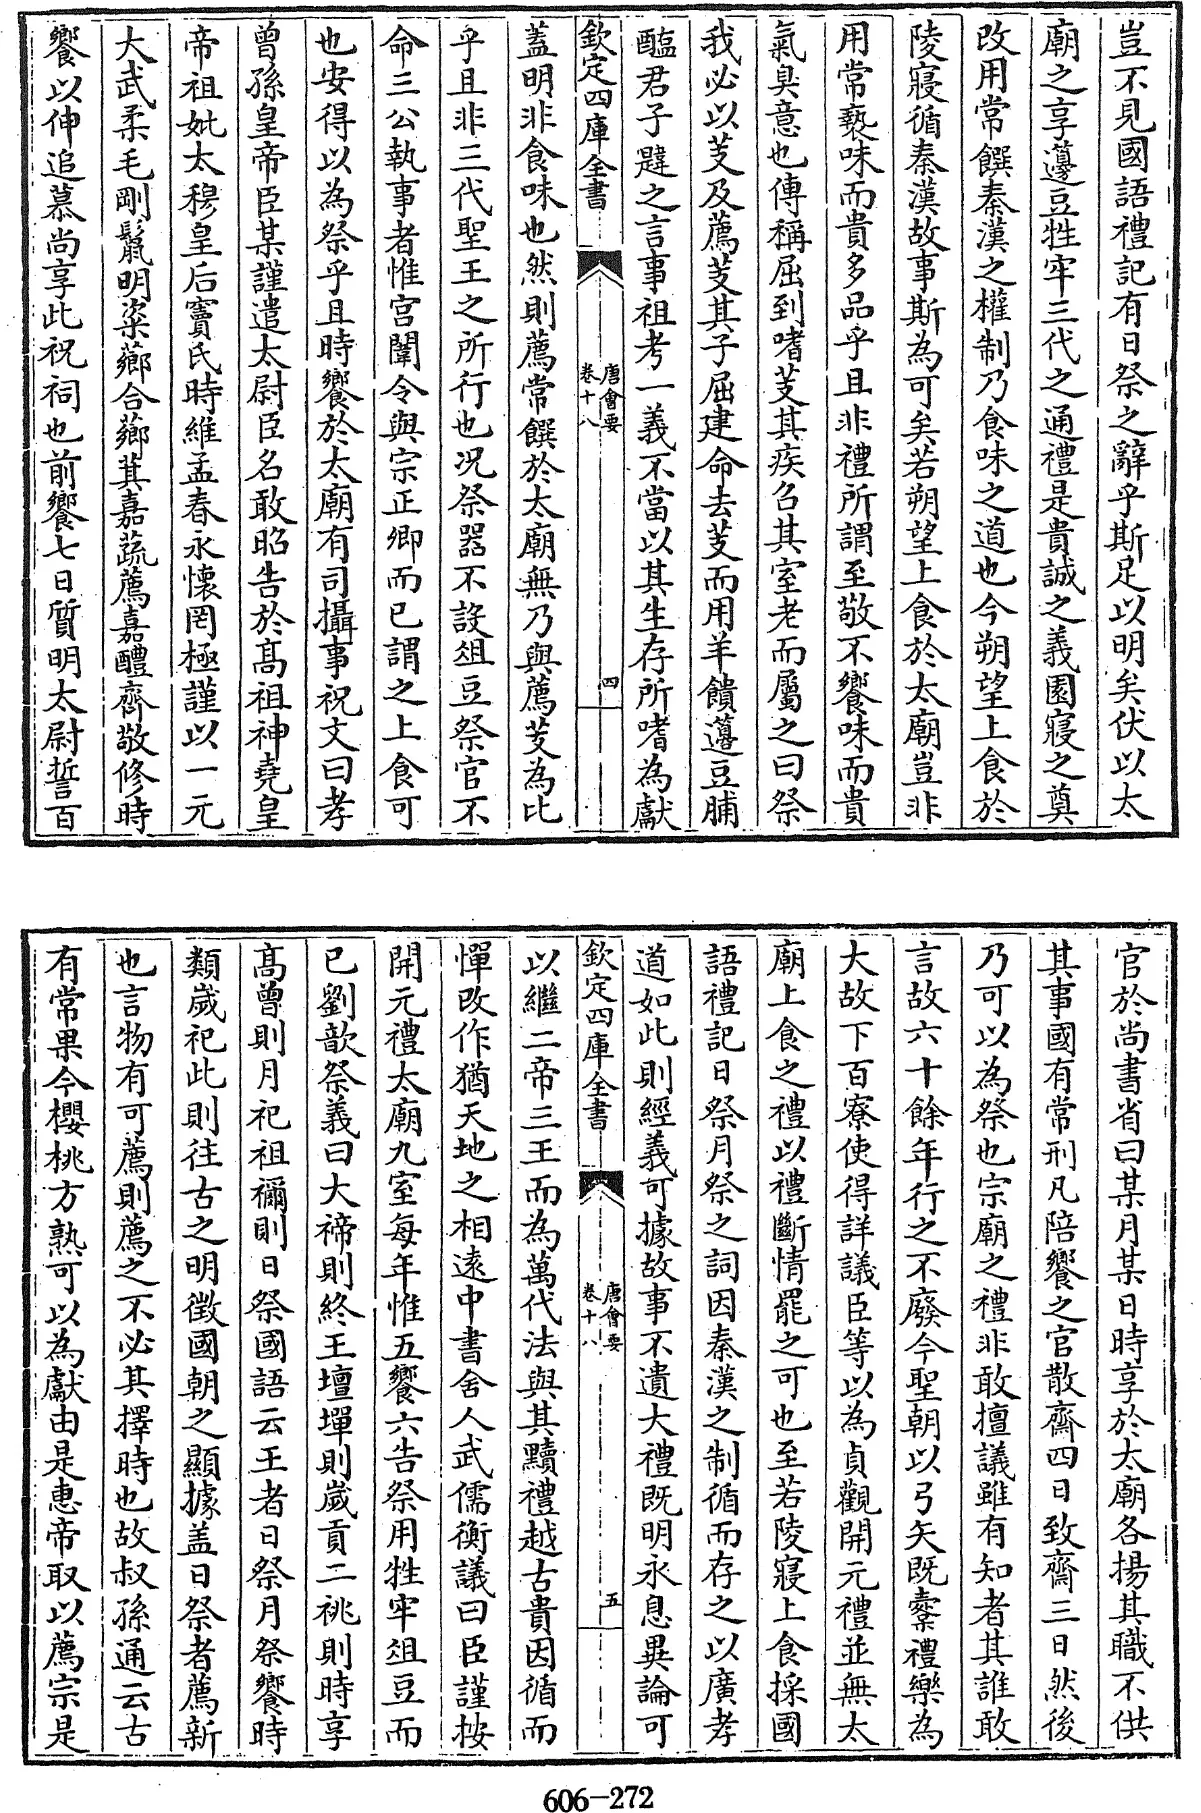 豈不見國語禮記有日祭之辭乎斯足以明矣伏以太
廟之享籩豆牲牢三代之通禮是貴誠之義園寢之奠
改用常饌秦漢之權制乃食味之道也今朔望上食於
陵寢循秦漢故事斯為可矣若朔望上食於太廟豈非
用常褻味而貴多品乎且非禮所謂至敬不饗味而貴
氣臭意也傳稱屈到嗜芰其疾召其室老而屬之曰祭
我必以芰及薦芰其子屈建命去芰而用羊饋籩豆脯
醢君子韙之言事祖考一義不當以其生存所嗜為獻
欽定四庫全書
唐會要
卷十八
四
蓋明非食味也然則薦常饌於太廟無乃與薦芰為比
乎且非三代聖王之所行也况祭器不設俎豆祭官不
命三公執事者惟宫闈令與宗正卿而已謂之上食可
也安得以為祭乎且時饗於太廟有司攝事祝文曰孝
曾孫皇帝臣某謹遣太尉臣名敢昭告於髙祖神堯皇
帝祖妣太穆皇后竇氏時維孟春永懷罔極謹以一元
大武柔毛剛鬛明粢薌合薌萁嘉蔬薦嘉醴齊敬修時
饗以伸追慕尚享此祝祠也前饗七日質明太尉誓百
官於尚書省曰某月某日時享於太廟各揚其職不供
其事國有常刑凡陪饗之官散齋四日致齋三日然後
乃可以為祭也宗廟之禮非敢擅議雖有知者其誰敢
言故六十餘年行之不廢今聖朝以弓矢既櫜禮樂為
大故下百寮使得詳議臣等以為貞觀開元禮並無太
廟上食之禮以禮斷情罷之可也至若陵寢上食採國
語禮記日祭月祭之詞因秦漢之制循而存之以廣孝
道如此則經義可據故事不遺大禮既明永息異論可
欽定四庫全書
唐會要
卷十八
五
以繼二帝三王而為萬代法與其黷禮越古貴因循而
憚改作猶天地之相遠中書舍人武儒衡議曰臣謹按
開元禮太廟九室每年惟五饗六告祭用牲牢俎豆而
已劉歆祭義曰大禘則終王壇墠則歲貢二祧則時享
髙曾則月祀祖禰則日祭國語云王者日祭月祭饗時
類歲祀此則往古之明徵國朝之顯據盖日祭者薦新
也言物有可薦則薦之不必其擇時也故叔孫通云古
有常果今櫻桃方熟可以為獻由是惠帝取以薦宗是
606-272